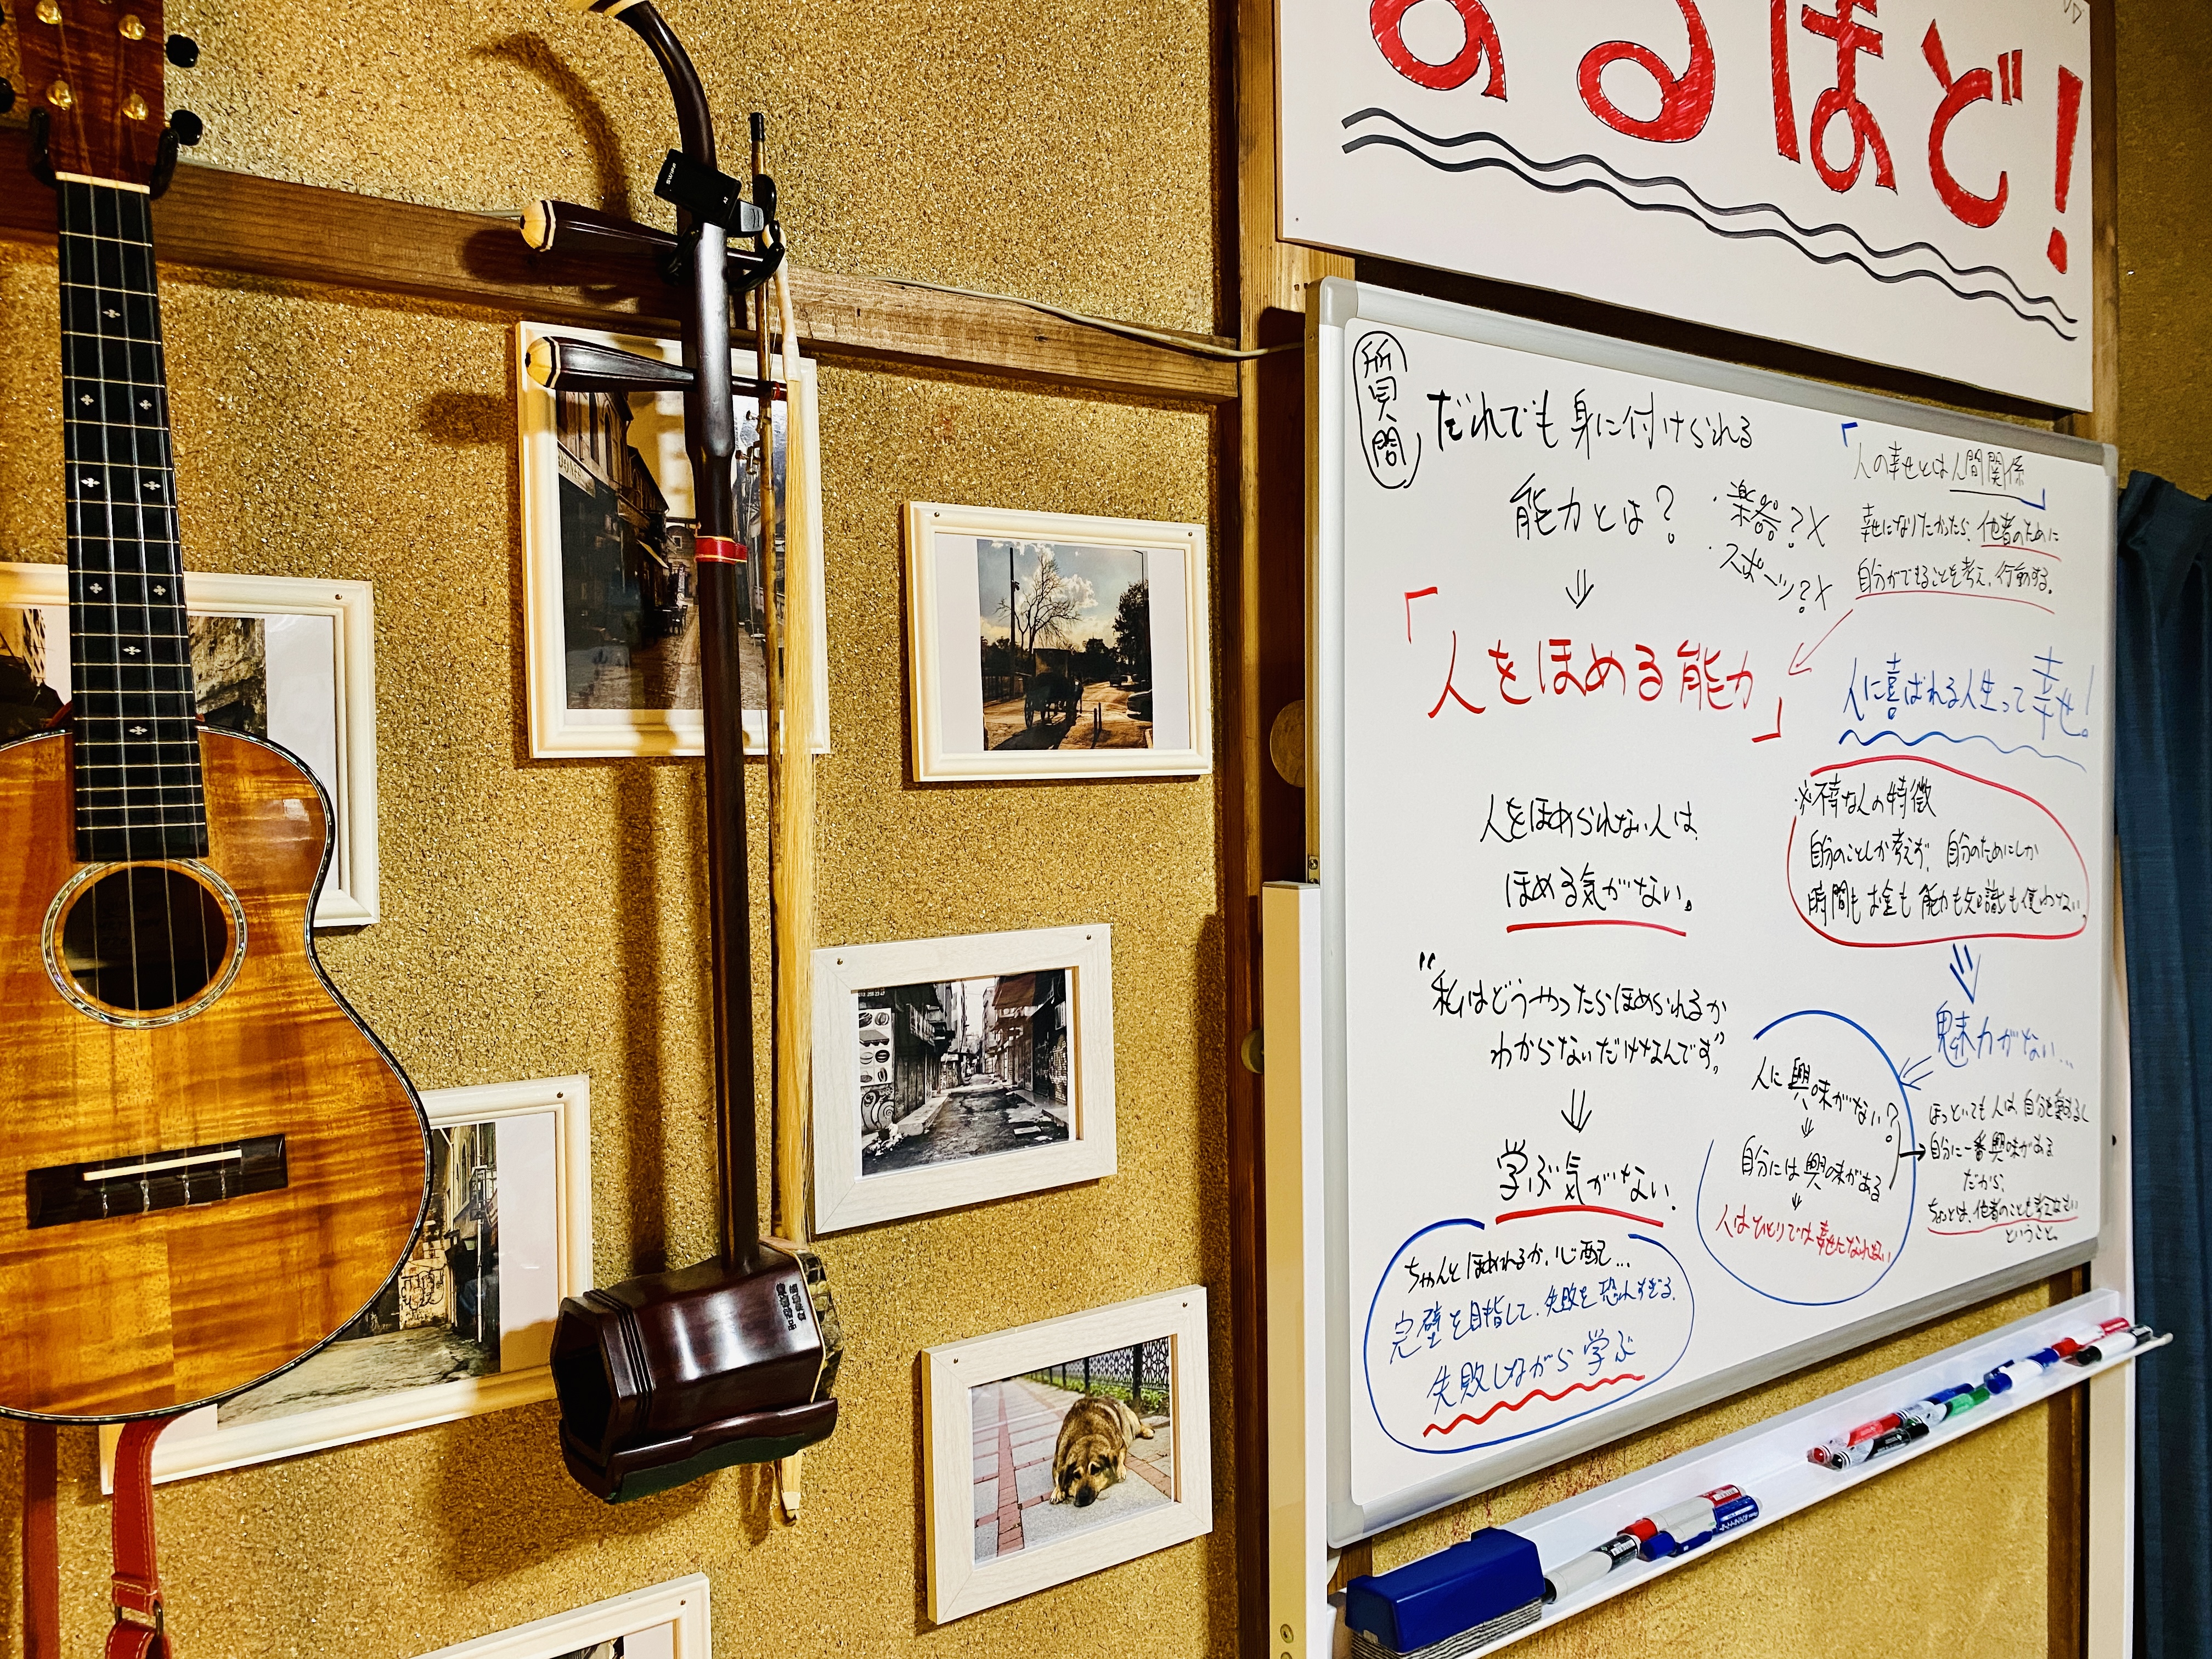 なるほど!
質問
だれでも身に付けられる
能力とは?
・楽器?×
・スポーツ?×
「人をほめる能力」
人をほめられない人は
ほめる気がない。
"私はどうやったらほめられるか
わからないだけなんです"
学ぶ気がない。
ちゃんとほめれるか、心配…
完璧を目指して、失敗を恐れすぎる。
失敗しながら学ぶ
「人の幸せとは人間関係」
幸せになりたかったら、他者のために
自分ができることを考え、行動する。
人に喜ばれる人生って幸せ!
※不幸な人の特徴
自分のことしか考えず、自分のためにしか
時間もお金も能力も知識も使わない。
魅力がない…
人に興味がない?
自分には興味がある
人はひとりでは幸せになれない
ほっといても人は、自分を愛するし
自分に一番興味がある
だから、
ちょっとは、他者のことも考えなさい
ということ。